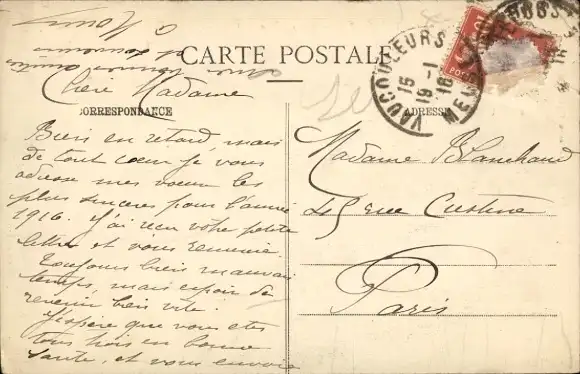 CARTE POSTALE
CORRESPONDANCE
ADRESSE
VAUCOULEURS
15 - 1
19 16
MEUSE
Chère Madame
Bien en retard, mais
de tout cœur je vous
adresse mes vœux les
plus sincères pour l'année
1916. J'ai reçu votre petite
lettre et vous remercie.
Toujours bien mauvais
temps, mais espoir de
revenir bien vite.
J'espère que vous êtes
tous trois en bonne
santé, et vous envoie
et
à
Madame Blanchard
rue Custine
Paris